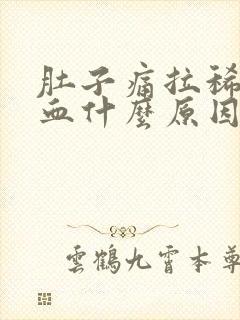 肚子痛拉稀
血什麼原因
雲鶴九霄本尊